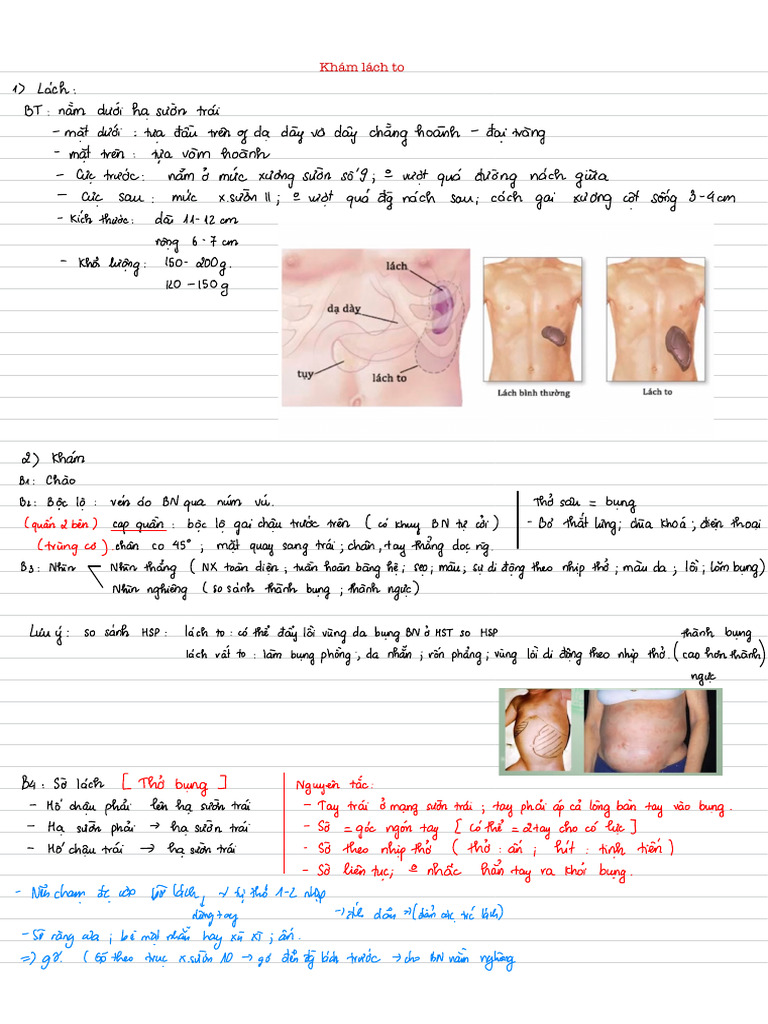 Khám lách to
1) Lách:
BT: nằm dưới hạ sườn trái
- mặt dưới: tựa đầu trên of dạ dày và dây chằng hoành - đại tràng
- mặt trên: tựa vòm hoành
- Cực trước: nằm ở mức xương sườn số 9; o vượt quá đường nách giữa
- Cực sau: mức x.sườn 11; o vượt quá đg nách sau; cách gai xương cột sống 3-4cm
- Kích thước: dài 11-12 cm
rộng 6-7 cm
- Khối lượng: 150-200g.
120-150g
lách
dạ dày
tụy
lách to
Lách bình thường
Lách to
2) Khám
B1: Chào
B2: Bộc lộ: vén áo BN qua núm vú.
(quấn 2 bên) cạp quần: bộc lộ gai chậu trước trên (có khuy BN tự cởi)
(trùng cơ) chân co 45°; mặt quay sang trái; chân, tay thẳng dọc ng.
Thở sâu = bụng
- Bỏ thắt lưng; chìa khoá; điện thoại
B3: Nhìn
Nhìn thẳng (NX toàn diện; tuần hoàn bàng hệ; sẹo; mầu; sự di động theo nhịp thở; màu da; lồi; lõm bụng)
Nhìn nghiêng (so sánh thành bụng; thành ngực)
Lưu ý: so sánh HSP: lách to: có thể đẩy lồi vùng da bụng BN ở HST so HSP
lách rất to: làm bụng phồng, da nhẵn; rốn phẳng; vùng lồi di động theo nhịp thở. (thành bụng cao hơn thành ngực)
B4: Sờ lách [Thở bụng]
- Hố chậu phải lên hạ sườn trái
- Hạ sườn phải → hạ sườn trái
- Hố chậu trái → hạ sườn trái
Nguyên tắc:
- Tay trái ở mạng sườn trái; tay phải áp cả lòng bàn tay vào bụng.
- Sờ = góc ngón tay [Có thể = 2 tay cho có lực]
- Sờ theo nhịp thở (thở: ấn; hít: tịnh tiến)
- Sờ liên tục; o nhấc hẳn tay ra khỏi bụng.
- Nếu chạm đc lách tự thở 1-2 nhịp
dừng tay
- Sờ răng cưa; bề mặt nhẵn hay xù xì; ấn.
=> gõ. (Gõ theo trục x.sườn 10 → gõ đến đg trước → cho BN nằm nghiêng